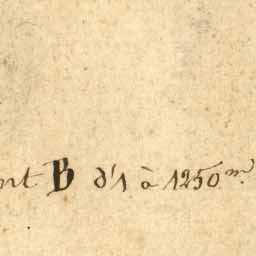 nt B d'1 à 1250 m.